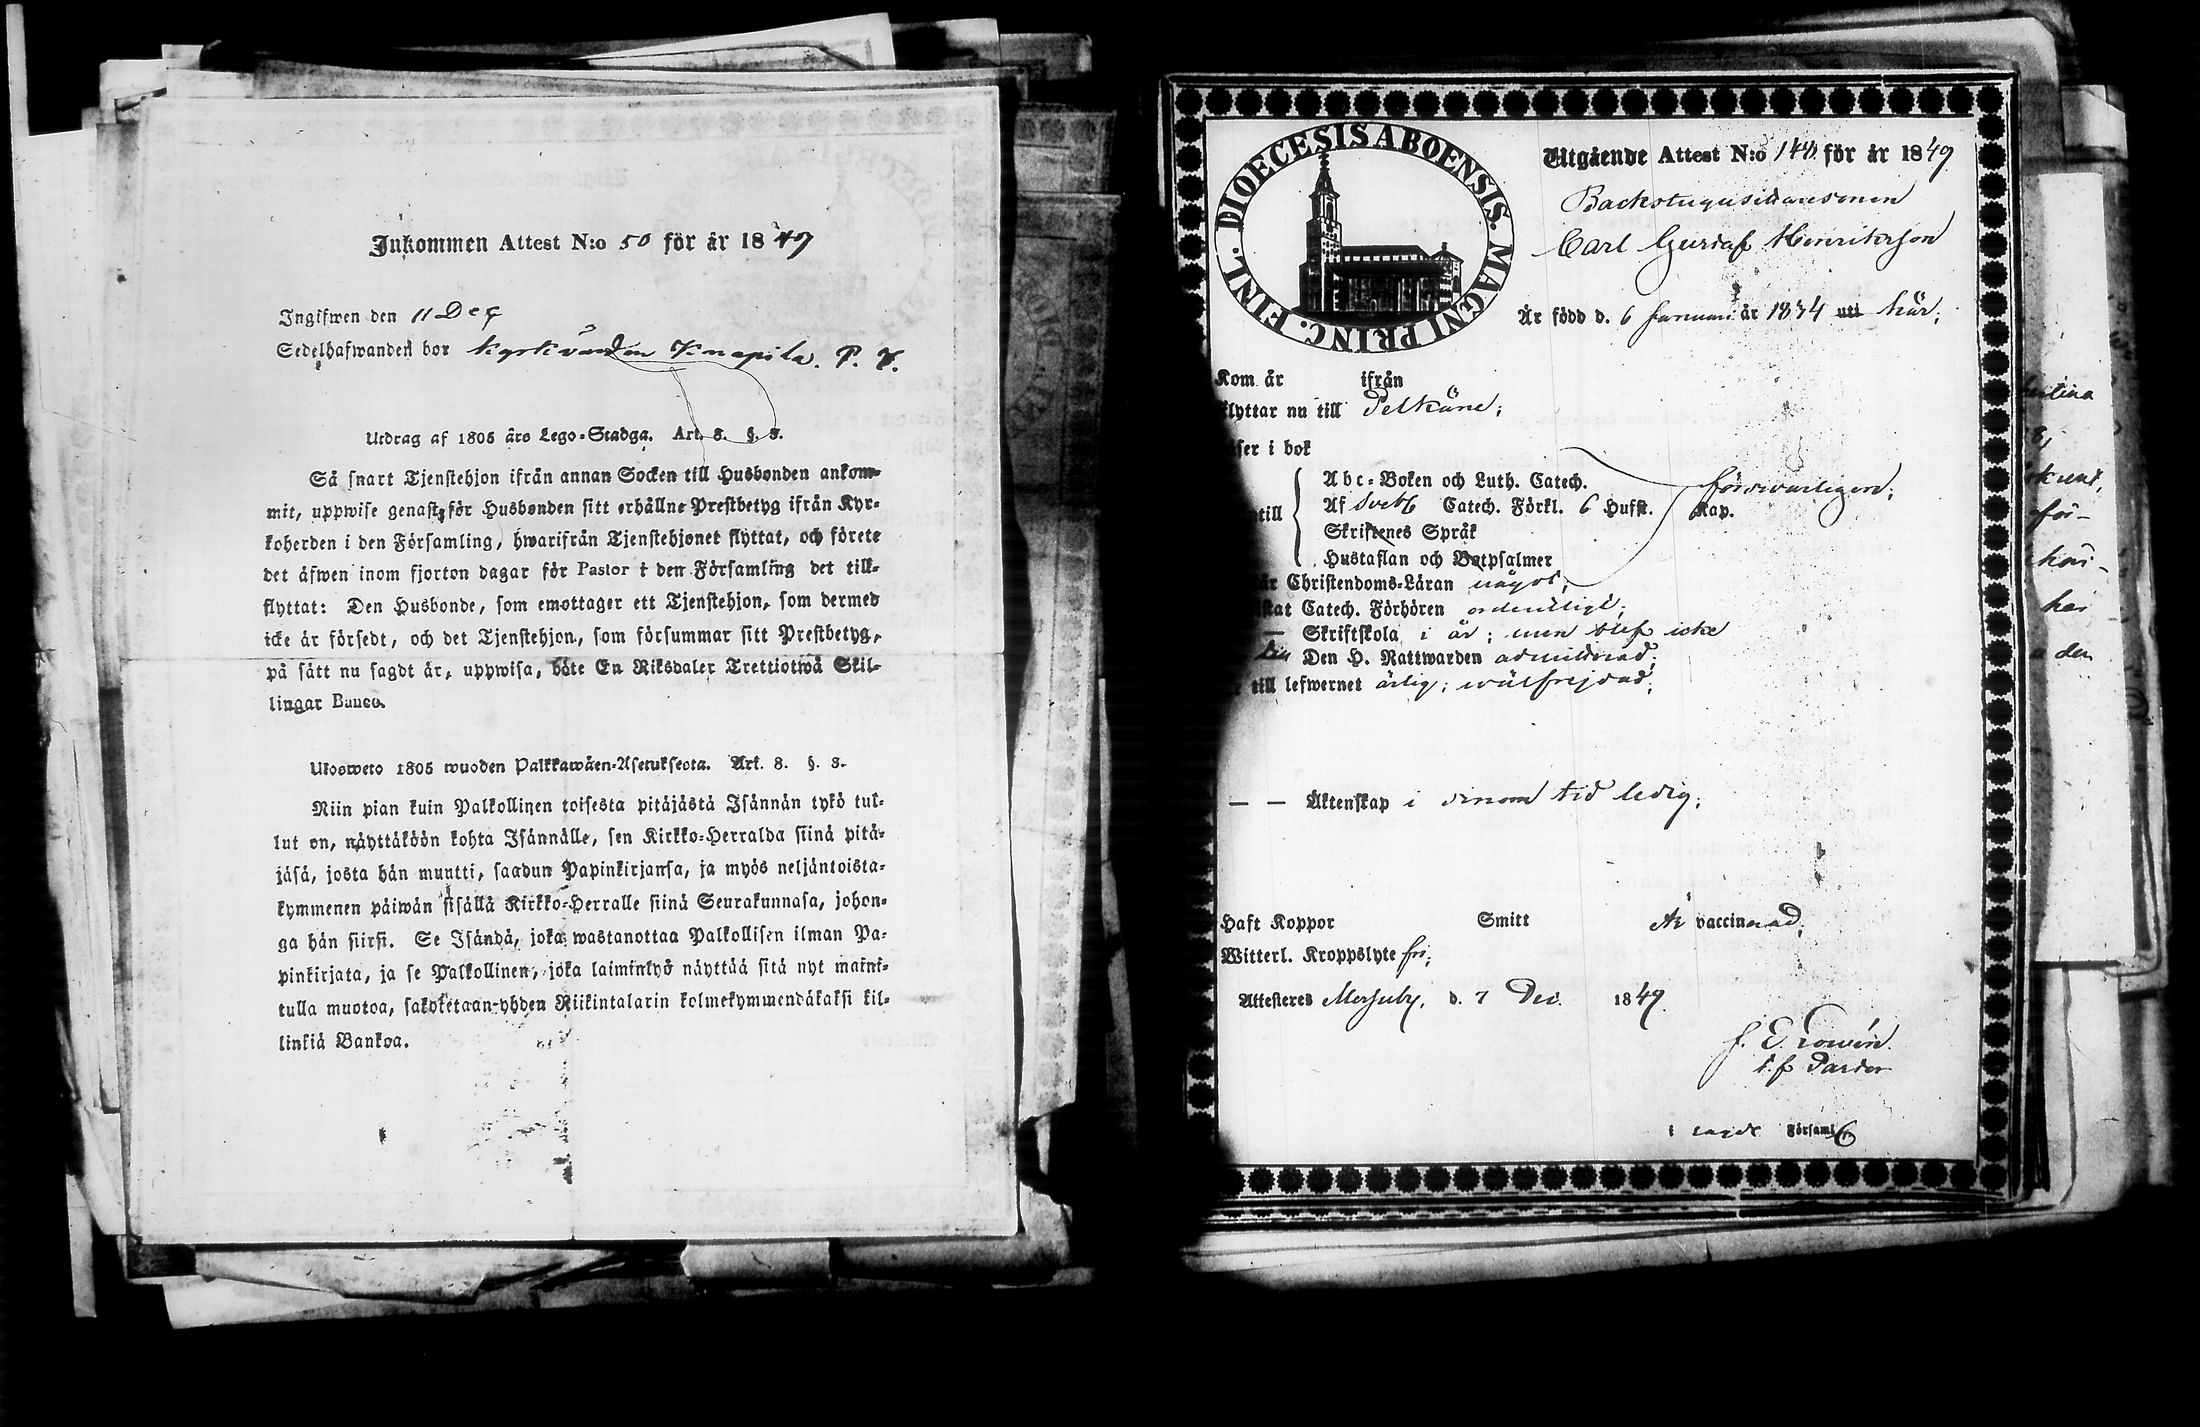 Inkommen Attest N:o 50 för år 1849
Ingifwen den 11 Dec
Sedelhafwanden bor Kyrkvärden Knapila. P. K.
Utdrag af 1805 års Lego-Stadga. Art. 8. §. 3.
Så snart Tjenstehjon ifrån annan Socken till Husbonden ankom-
mit, uppwise genast för Husbonden sitt erhållne Prestbetyg ifrån Kyr-
koherden i den Församling, hwarifrån Tjenstehjonet flyttat, och förete
det äfwen inom fjorton dagar för Pastor i den Församling det till-
flyttat: Den Husbonde, som emottager ett Tjenstehjon, som dermed
icke är försedt, och det Tjenstehjon, som försummar sitt Prestbetyg,
på sätt nu sagdt är, uppwisa, böte En Riksdaler Trettiotwå Skil-
lingar Banco.
Ulosweto 1805 wuoden Palkkawäen-Asetuksesta. Art. 8. §. 3.
Niin pian kuin Palkollinen toisesta pitäjästä Isännän tykö tul-
lut on, näyttäköön kohta Isännälle, sen Kirkko-Herralda siinä pitä-
jäsä, josta hän muutti, saadun Papinkirjansa, ja myös neljäntoista-
kymmenen päiwän sisällä Kirkko-Herralle siinä Seurakunnasa, johon-
ga hän siirsi. Se Isändä, joka wastanottaa Palkollisen ilman Pa-
pinkirjata, ja se Palkollinen, joka laiminlyö näyttää sitä nyt maini-
tulla muotoa, sakoketaan yhden Riikintalarin kolmekymmendäkaksi kil-
linkiä Bankoa.
DIOECESIS ABOENSIS. MAGNI PRINC. FINL.
Utgående Attest N:o 148 för år 1849
Backstugusittaresonen
Carl Gustaf Henriksson
Är född d. 6 Januari år 1834 uti här;
Kom år ifrån
flyttar nu till Pelkäne;
läser i bok
till Abc-Boken och Luth. Catech. försvarligen;
Af Sveb Catech. Förkl. 6 Hufst. Kap.
Skriftenes Språk
Hustaflan och Botpsalmer
Christendoms-Läran något;
Catech. Förhören ordentligt;
— Skriftskola i år; men blef icke
Den H. Nattwarden admitterad;
till lefwernet ärlig; wälfrejdad;
— — Äktenskap i sinom tid ledig;
Haft Koppor Smitt Är vaccinerad;
Witterl. Kroppslyte fri;
Attesteras d. 7 Dec. 1849.
J. E.
t. f. Pastor
i Församl.